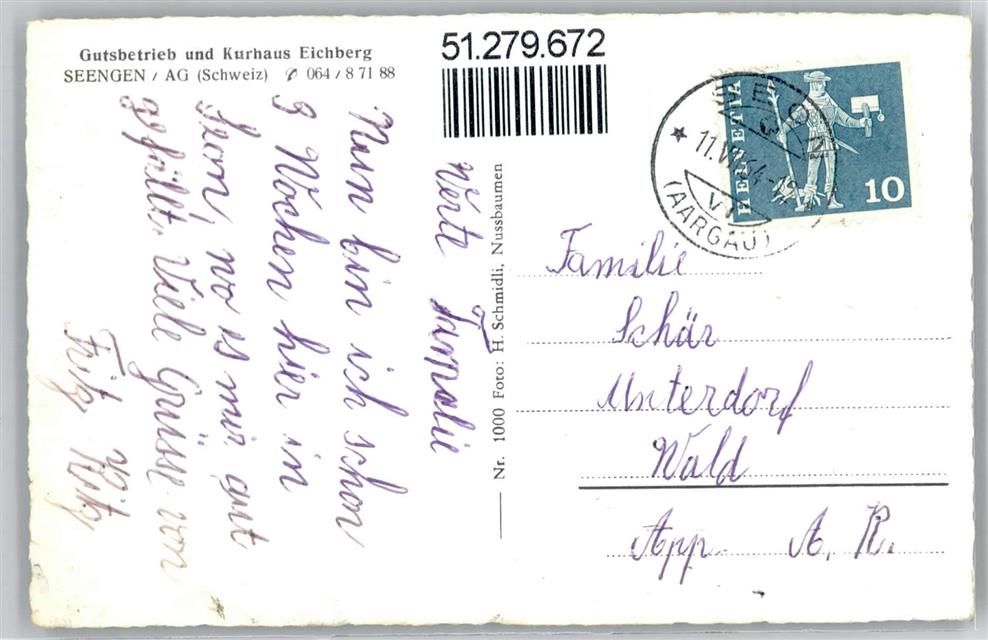 Gutsbetrieb und Kurhaus Eichberg
SEENGEN / AG (Schweiz) ✆ 064 / 8 71 88
51.279.672
HELVETIA
10
11.VI.64
(AARGAU)
Werte Familie
Nun bin ich schon
9 Wochen hier in
Seon, wo es mir gut
gefällt. Viele Grüsse von
Fritz
Nr. 1000 Foto: H. Schmidli, Nussbaumen
Familie
Schär
Unterdorf
Wald
App. A. R.